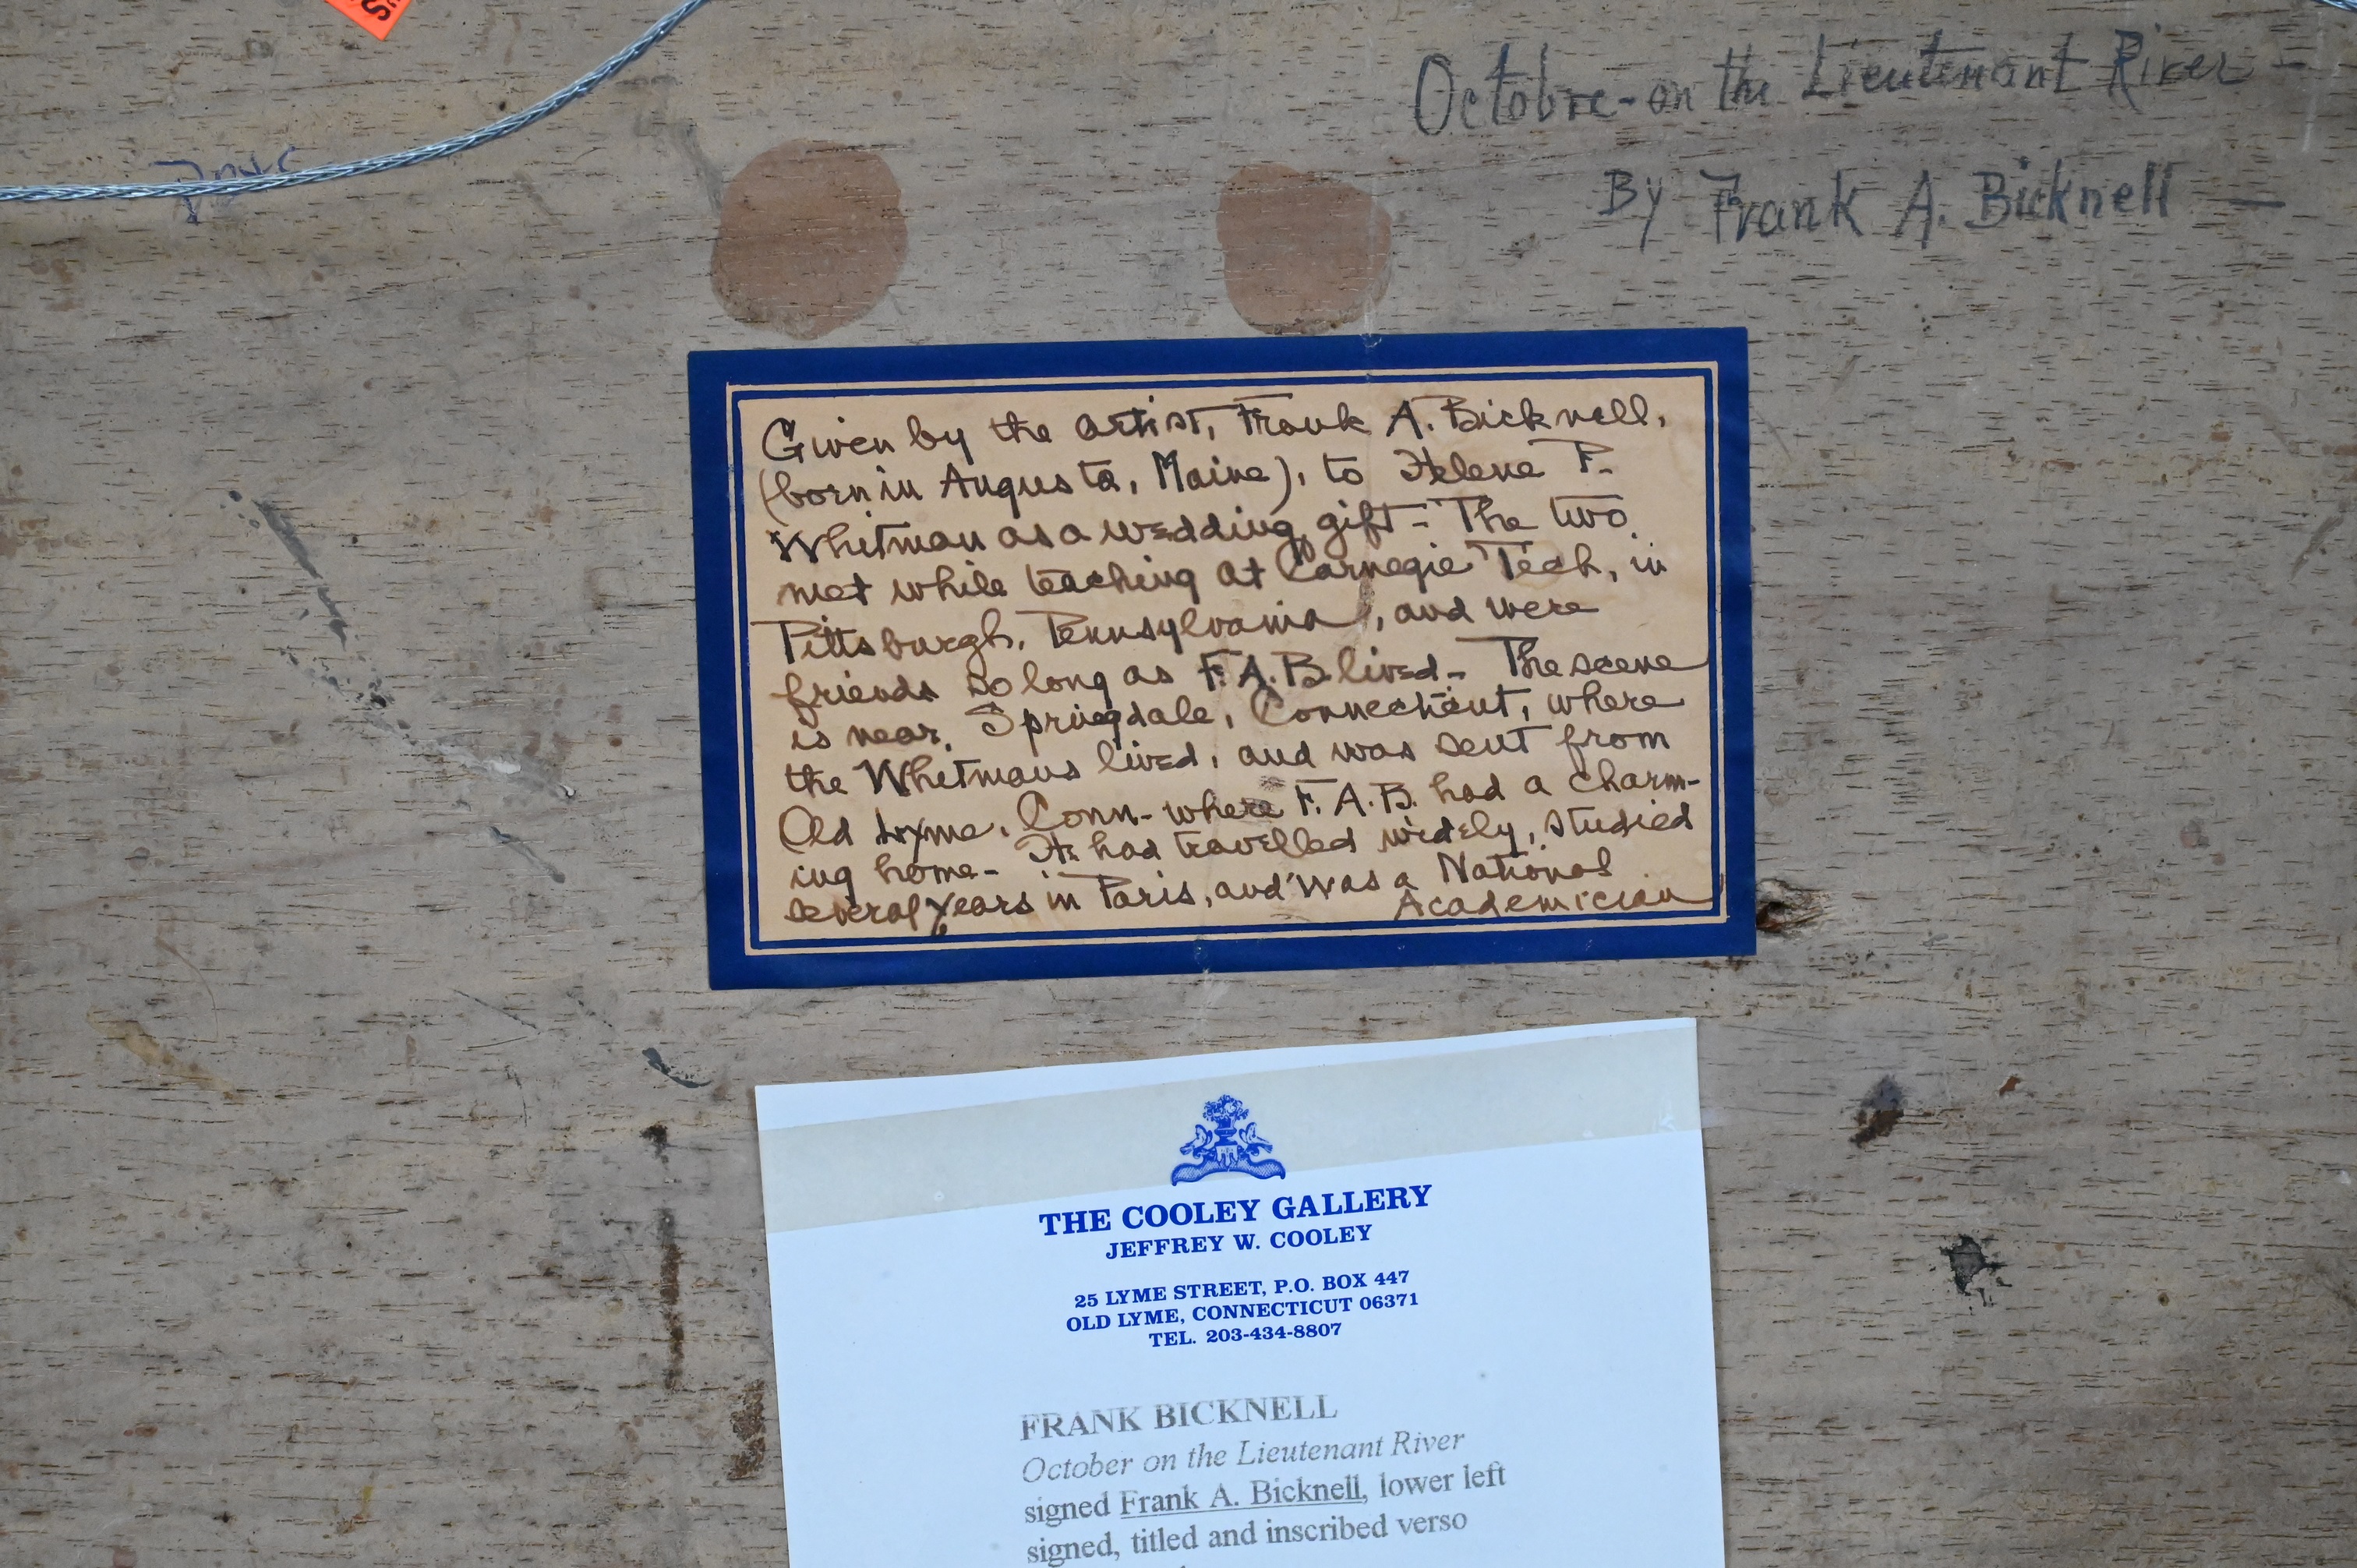 Octobre - on the Lieutenant River -
By Frank A. Bicknell —
Given by the artist, Frank A. Bicknell,
(born in Augusta, Maine), to Helene P.
Whitman as a wedding gift - The two
met while teaching at Carnegie Tech, in
Pittsburgh, Pennsylvania, and were
friends so long as F. A. B. lived - The scene
is near, Springdale, Connecticut, where
the Whitmans lived, and was sent from
Old Lyme, Conn - where F. A. B. had a charm-
ing home - He had travelled widely, studied
several years in Paris, and was a National
Academician
THE COOLEY GALLERY
JEFFREY W. COOLEY
25 LYME STREET, P.O. BOX 447
OLD LYME, CONNECTICUT 06371
TEL. 203-434-8807
FRANK BICKNELL
October on the Lieutenant River
signed Frank A. Bicknell, lower left
signed, titled and inscribed verso